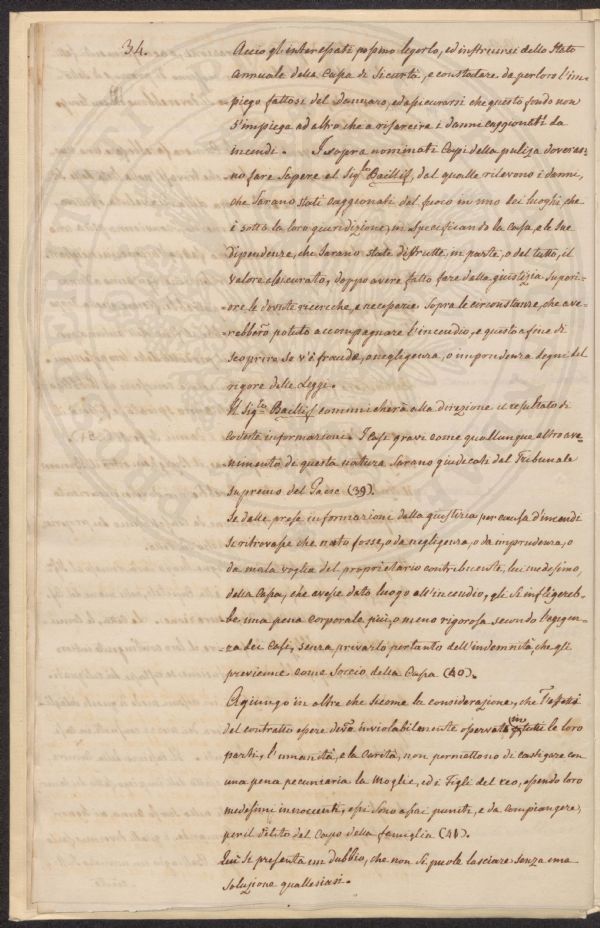 34.
Acciò gl'interessati possino legerlo, ed instruirsi dello Stato
annuale della Cassa di Sicurtà, e constatare da per loro l'im=
piego fattosi del dannaro, ed assicurarsi che questo fondo non
s'impiega ad altro che a rifarcire i danni caggionati da
incendi. I sopra nominati Capi della pulizia doveran=
no fare sapere al Sig.re Baillif, dal qualle rilevono i danni,
che sarano stati caggionati dal fuoco in uno dei luoghi che
è sotto la loro giuridizione, in specificando la Casa, e le sue
dipendenze, che sarano state distrutte, in parte, o del tutto, il
valore assicurato, doppo avere fatto fare dalla giustizia superi=
=ore le dovute ricerche, e necessarie sopra le circonstanze, che ave=
=rebbero potuto accompagnare l'incendio, e questo a fine di
scoprire se v'è fraude, o negligenza, o imprudenza degni del
rigore delle Leggi.
Il Sig.re Baillif communicherà alla direzione il resultato di
codeste informazioni. I Casi gravi come quallunque altro ave=
nimento di questa natura sarano giudicati dal Tribunale
supremo del Paese (39).
Se dalle prese informazioni dalla giustizia per causa d'incendi
si ritrovasse che nato fosse, o da negligenza, o da imprudenza, o
da mala voglia del proprietario contribuente, lui medesimo,
della Cassa, che avesse dato luogo all'incendio, gli si infligereb=
be una pena corporale più, o meno rigorosa secondo l'esigen=
za dei Casi, senza privarlo pertanto dell'indemnità, che gli
previeme come Soccio della Cassa (40).
Agiungo in oltre che sicome la considerazione, che l'effetti
del contratto essere devono inviolabilmente osservati in tutte le loro
parti, l'umanità, e la Carità, non permettono di castigare con
una pena pecuniaria la Moglie, ed i Figli del reo, essendo loro
medesimi innocenti, essi sono assai puniti, e da compiangere,
per il delito del Capo della famiglia (41).
Qui si presenta un dubbio, che non si puole lasciare senza una
soluzione quallesiasi.